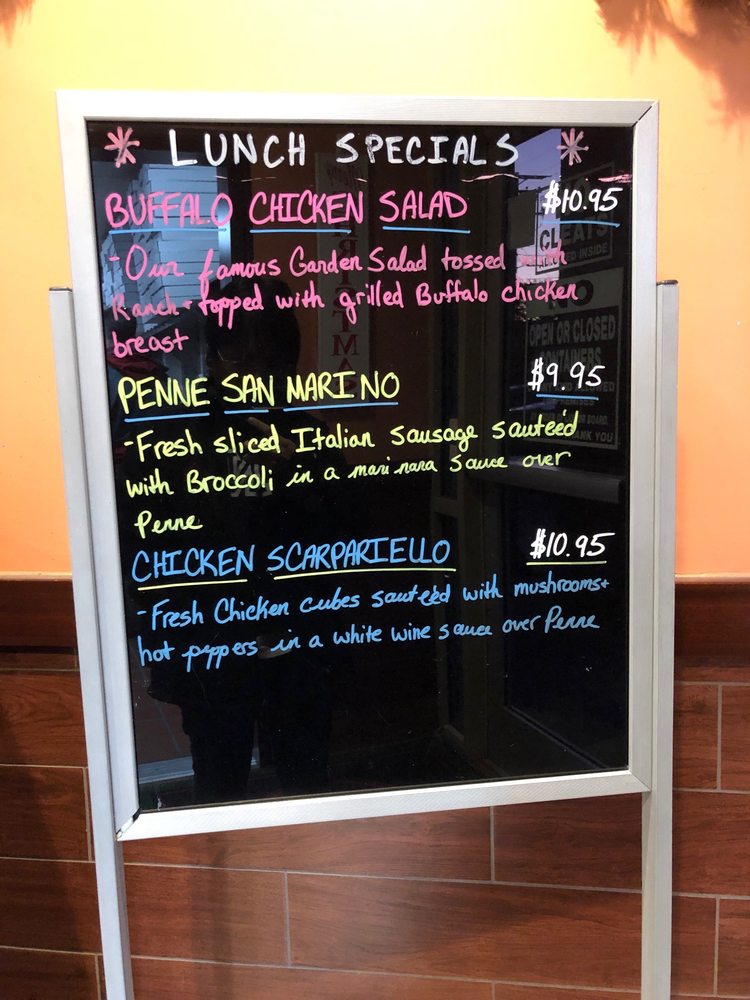 * LUNCH SPECIALS *
BUFFALO CHICKEN SALAD $10.95
- Our famous Garden Salad tossed with
Ranch + topped with grilled Buffalo chicken
breast
PENNE SAN MARINO $9.95
- Fresh sliced Italian Sausage sauteéd
with Broccoli in a marinara sauce over
Penne
CHICKEN SCARPARIELLO $10.95
- Fresh Chicken cubes sauteéd with mushrooms +
hot peppers in a white wine sauce over Penne
CLEATS
INSIDE
NO
OPEN OR CLOSED
CONTAINERS
THANK YOU